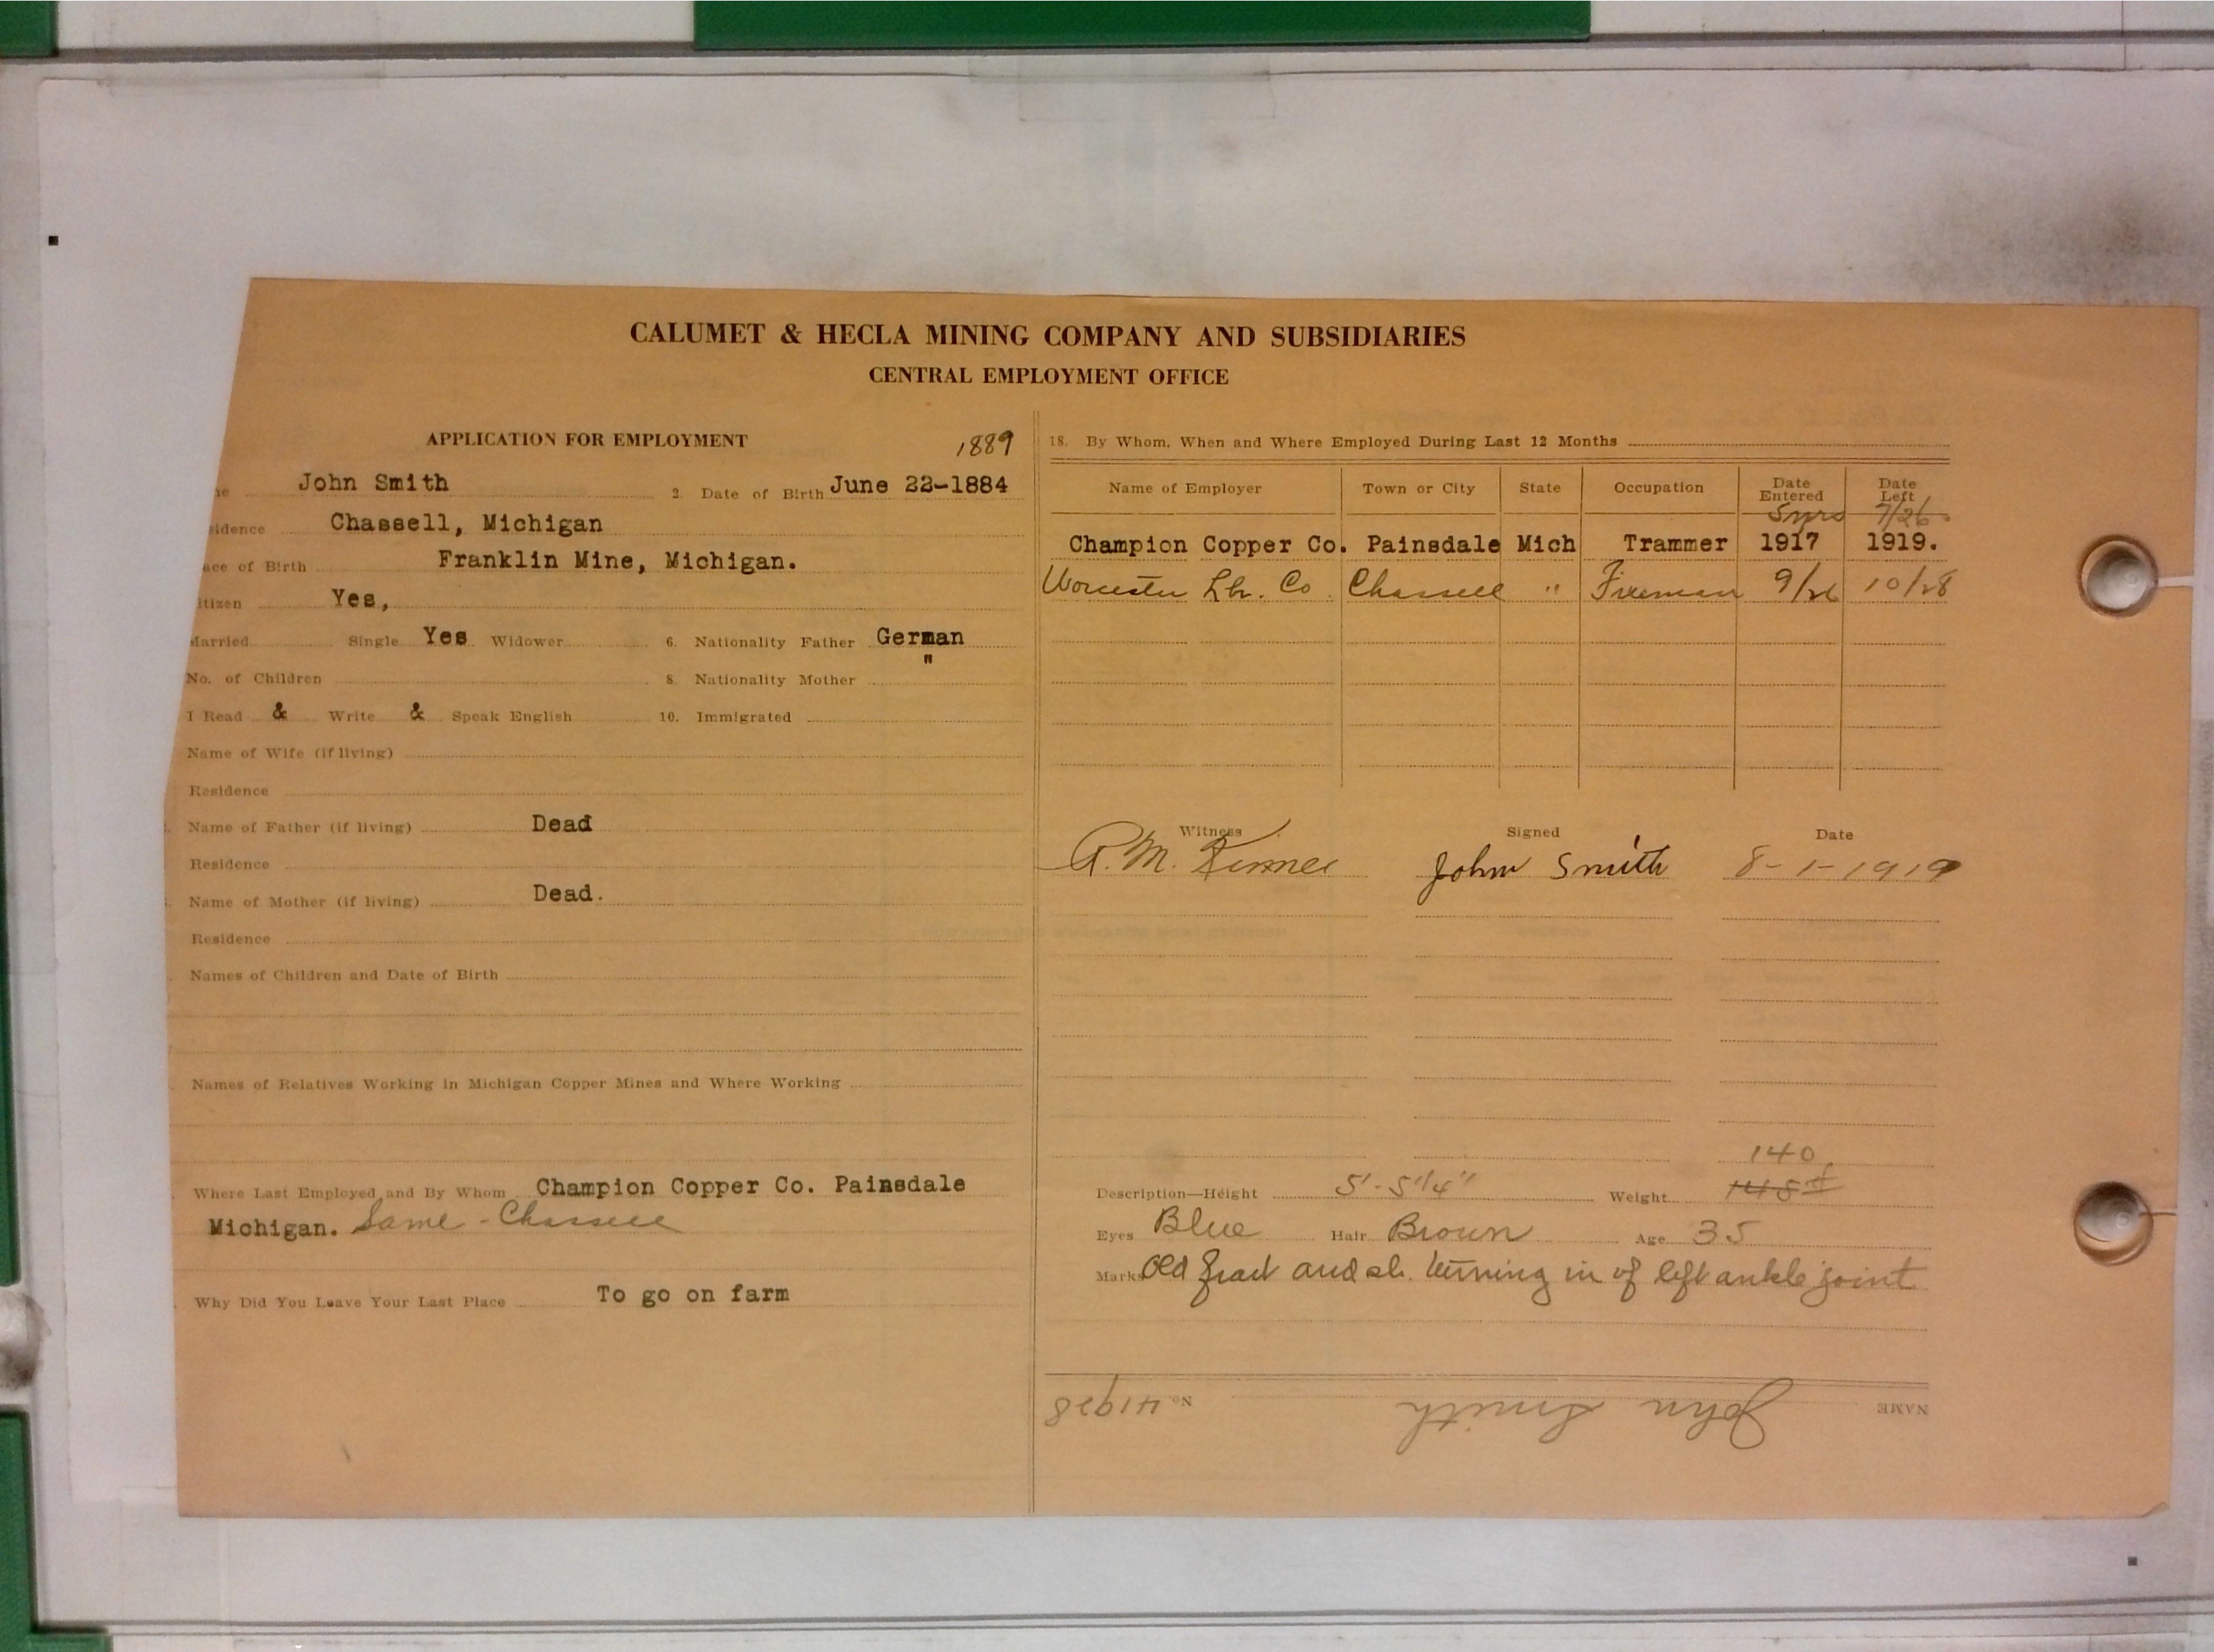 CALUMET & HECLA MINING COMPANY AND SUBSIDIARIES
CENTRAL EMPLOYMENT OFFICE
APPLICATION FOR EMPLOYMENT 1889
John Smith 2. Date of Birth June 22-1884
idence Chassell, Michigan
ace of Birth Franklin Mine, Michigan.
itizen Yes,
Married Single Yes Widower 6. Nationality Father German
No. of Children 8. Nationality Mother "
I Read & Write & Speak English 10. Immigrated
Name of Wife (if living)
Residence
Name of Father (if living) Dead
Residence
Name of Mother (if living) Dead.
Residence
Names of Children and Date of Birth
Names of Relatives Working in Michigan Copper Mines and Where Working
Where Last Employed and By Whom Champion Copper Co. Painsdale
Michigan. Same - Chassell
Why Did You Leave Your Last Place To go on farm
18. By Whom, When and Where Employed During Last 12 Months
Name of Employer Town or City State Occupation Date Entered Date Left
5 yrs 7/26
Champion Copper Co. Painsdale Mich Trammer 1917 1919.
Worcester Lbr. Co Chassell " Fireman 9/26 10/28
Witness Signed Date
A. M. John Smith 8-1-1919
140
Description—Height 5'-5 1/4" Weight 145#
Eyes Blue Hair Brown Age 35
Marks Old fract and sl. turning in of left ankle joint
NAME John Smith No 41928